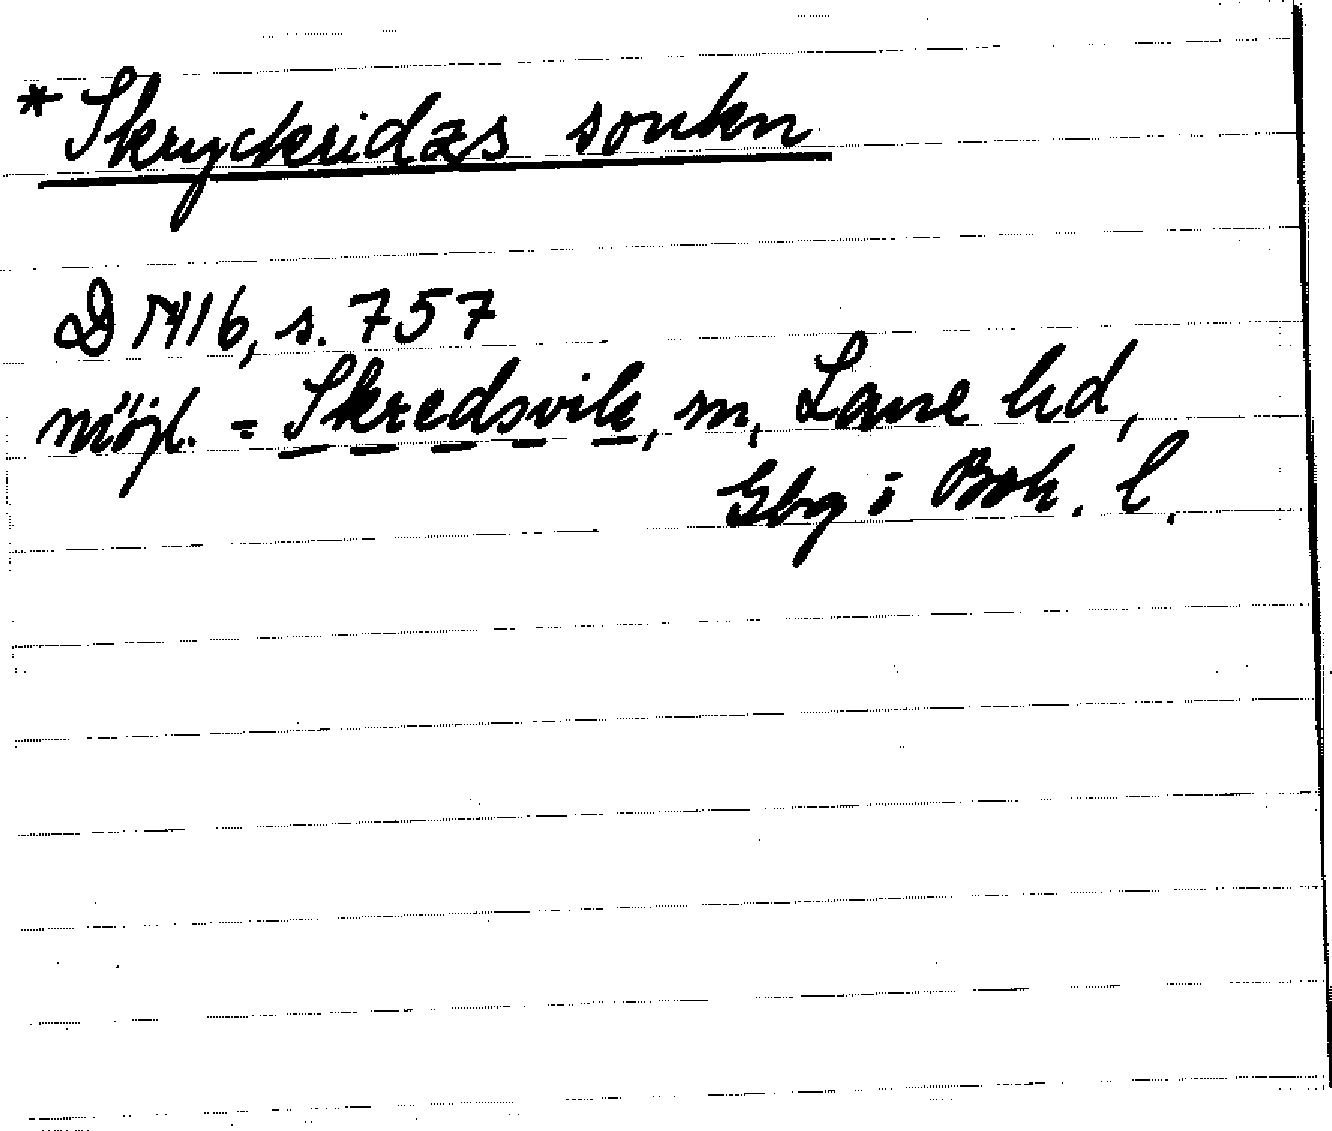 *Skryckridzs soukn
DN 16, s. 757
möjl. = Skredsvik, sn, Lane hd,
Gbg o Boh. l.